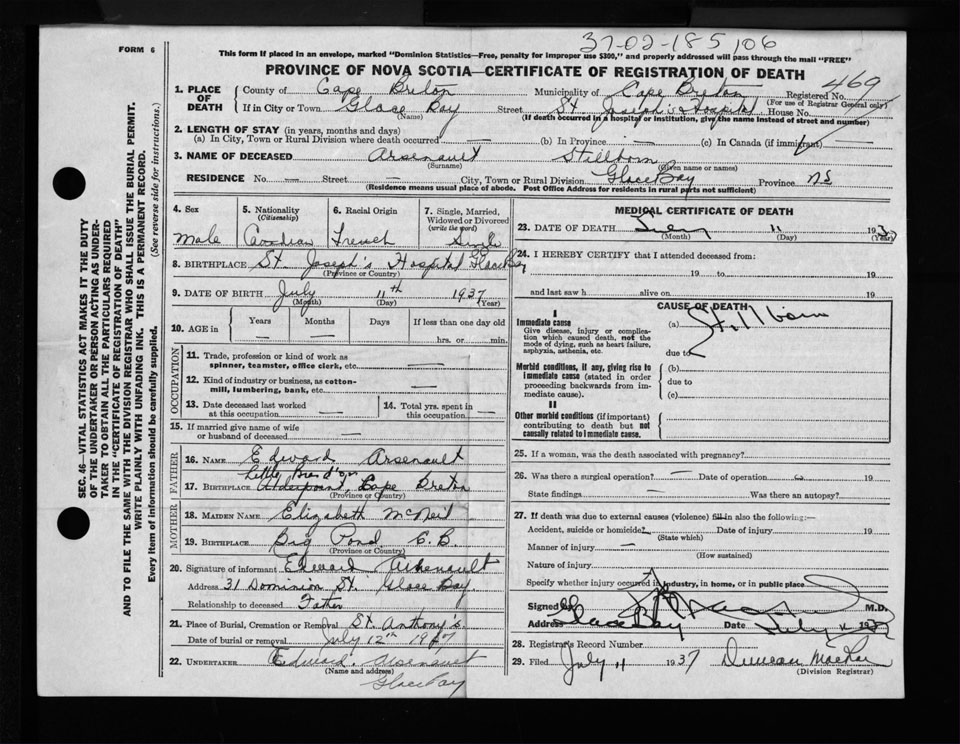 FORM 6
37-02-185,106
This form if placed in an envelope, marked "Dominion Statistics—Free, penalty for improper use $300," and properly addressed will pass through the mail "FREE"
PROVINCE OF NOVA SCOTIA—CERTIFICATE OF REGISTRATION OF DEATH
1. PLACE OF DEATH
County of Cape Breton Municipality of Cape Breton Registered No. 469
(For use of Registrar General only)
If in City or Town Glace Bay Street St Joseph's Hospital House No.
(Name) (If death occurred in a hospital or institution, give the name instead of street and number)
2. LENGTH OF STAY (in years, months and days)
(a) In City, Town or Rural Division where death occurred — (b) In Province — (c) In Canada (if immigrant) —
3. NAME OF DECEASED Arsenault Stillborn
(Surname) (Given name or names)
RESIDENCE No. — Street — City, Town or Rural Division Glace Bay Province N.S
(Residence means usual place of abode. Post Office Address for residents in rural parts not sufficient)
4. Sex Male
5. Nationality (Citizenship) Canadian
6. Racial Origin French
7. Single, Married, Widowed or Divorced (write the word) Single
8. BIRTHPLACE St. Joseph's Hospital Glace Bay
(Province or Country)
9. DATE OF BIRTH July 11th 1937
(Month) (Day) (Year)
10. AGE in Years Months Days If less than one day old
hrs. or min.
OCCUPATION
11. Trade, profession or kind of work as spinner, teamster, office clerk, etc. —
12. Kind of industry or business, as cotton-mill, lumbering, bank, etc. —
13. Date deceased last worked at this occupation —
14. Total yrs. spent in this occupation —
15. If married give name of wife or husband of deceased —
FATHER
16. NAME Edward Arsenault
Little Bras d'or
17. BIRTHPLACE Alderpoint, Cape Breton
(Province or Country)
MOTHER
18. MAIDEN NAME Elizabeth McNeil
19. BIRTHPLACE Big Pond C.B.
(Province or Country)
20. Signature of informant Edward Arsenault
Address 31 Dominion St. Glace Bay.
Relationship to deceased Father
21. Place of Burial, Cremation or Removal St. Anthony's
Date of burial or removal July 12th 1937
22. UNDERTAKER Edward Arsenault
(Name and address)
Glace Bay
MEDICAL CERTIFICATE OF DEATH
23. DATE OF DEATH July 11 1937
(Month) (Day) (Year)
24. I HEREBY CERTIFY that I attended deceased from:
19 to 19
and last saw h alive on 19
CAUSE OF DEATH
I
Immediate cause
Give disease, injury or complication which caused death, not the mode of dying, such as heart failure, asphyxia, asthenia, etc.
(a) Stillborn
due to
Morbid conditions, if any, giving rise to immediate cause (stated in order proceeding backwards from immediate cause).
(b)
due to
(c)
II
Other morbid conditions (if important) contributing to death but not causally related to immediate cause.
25. If a woman, was the death associated with pregnancy?
26. Was there a surgical operation? — Date of operation 19
State findings Was there an autopsy?
27. If death was due to external causes (violence) fill in also the following:—
Accident, suicide or homicide? Date of injury 19
(State which)
Manner of injury —
(How sustained)
Nature of injury
Specify whether injury occurred in industry, in home, or in public place
Signed by M.D.
Address Glace Bay Date July 11 1937
28. Registrar's Record Number
29. Filed July 11 1937 Duncan MacRae
(Division Registrar)
SEC. 46—VITAL STATISTICS ACT MAKES IT THE DUTY
OF THE UNDERTAKER OR PERSON ACTING AS UNDER-
TAKER TO OBTAIN ALL THE PARTICULARS REQUIRED
IN THE "CERTIFICATE OF REGISTRATION OF DEATH"
AND TO FILE THE SAME WITH THE DIVISION REGISTRAR WHO SHALL ISSUE THE BURIAL PERMIT.
WRITE PLAINLY WITH UNFADING INK. THIS IS A PERMANENT RECORD.
Every item of information should be carefully supplied. (See reverse side for instructions.)